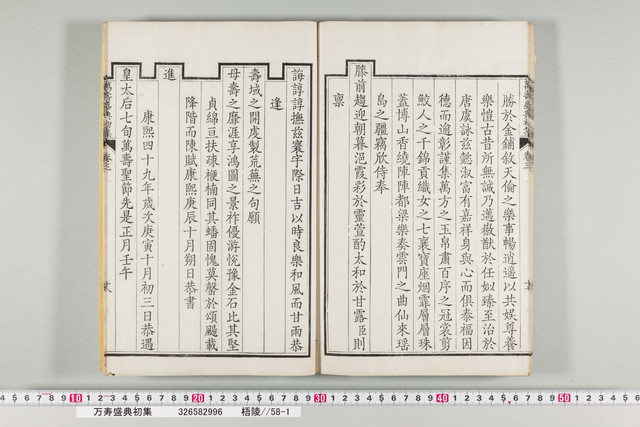 勝於金鋪敘天倫之樂事暢逍遙以共娱尊養
樂愷古昔所無誠乃邁徽猷於任姒臻至治於
唐虞詠茲懿淑富有嘉祥身與心而俱泰福因
德而逾彰謹集萬方之玉帛肅百序之冠裳剪
鮫人之千錦貢織女之七襄寶座烟霏層層珠
蓋博山香繞陣陣都梁樂奏雲門之曲仙來瑶
島之疆竊欣侍奉
膝前趨迎朝暮浥霞彩於靈萱酌太和於甘露臣則
稟
誨諄諄撫兹寰宇際日吉以時良樂和風而甘雨恭
逢
壽域之開虔製荒蕪之句願
母壽之靡涯享鴻圖之景祚優游悅豫金石比其堅
貞綿亘扶疎楩楠同其蟠固愧莫馨於頌颺載
降階而陳賦康熙庚辰十月朔日恭書
進
康熙四十九年歲次庚寅十月初三日恭遇
皇太后七旬萬壽聖節先是正月壬午
10 20 30 40 50
万寿盛典初集 326582996 梧陵//58-1